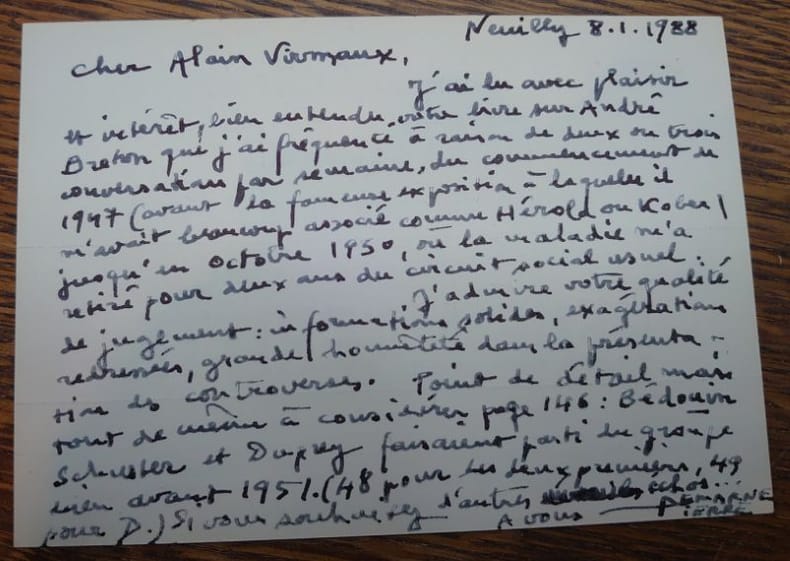 Neuilly 8.1.1988
Cher Alain Virmaux,
J'ai lu avec plaisir
et intérêt, bien entendu, votre livre sur André
Breton que j'ai fréquenté à raison de deux ou trois
conversations par semaine, du commencement de
1947 (avant la fameuse exposition à laquelle il
m'avait beaucoup associé comme Hérold ou Kober)
jusqu'en octobre 1950, où la maladie m'a
retiré pour deux ans du circuit social usuel.
J'admire votre qualité
de jugement : informations solides, exagérations
redressées, grande honnêteté dans la présenta-
tion des controverses. Point de détail mais
tout de même à considérer page 146 : Bédouin
Schuster et Duprey faisaient parti du groupe
bien avant 1951. (48 pour les deux premiers, 49
pour D.) Si vous souhaitez d'autres échos...
A vous DEMARNE
PIERRE